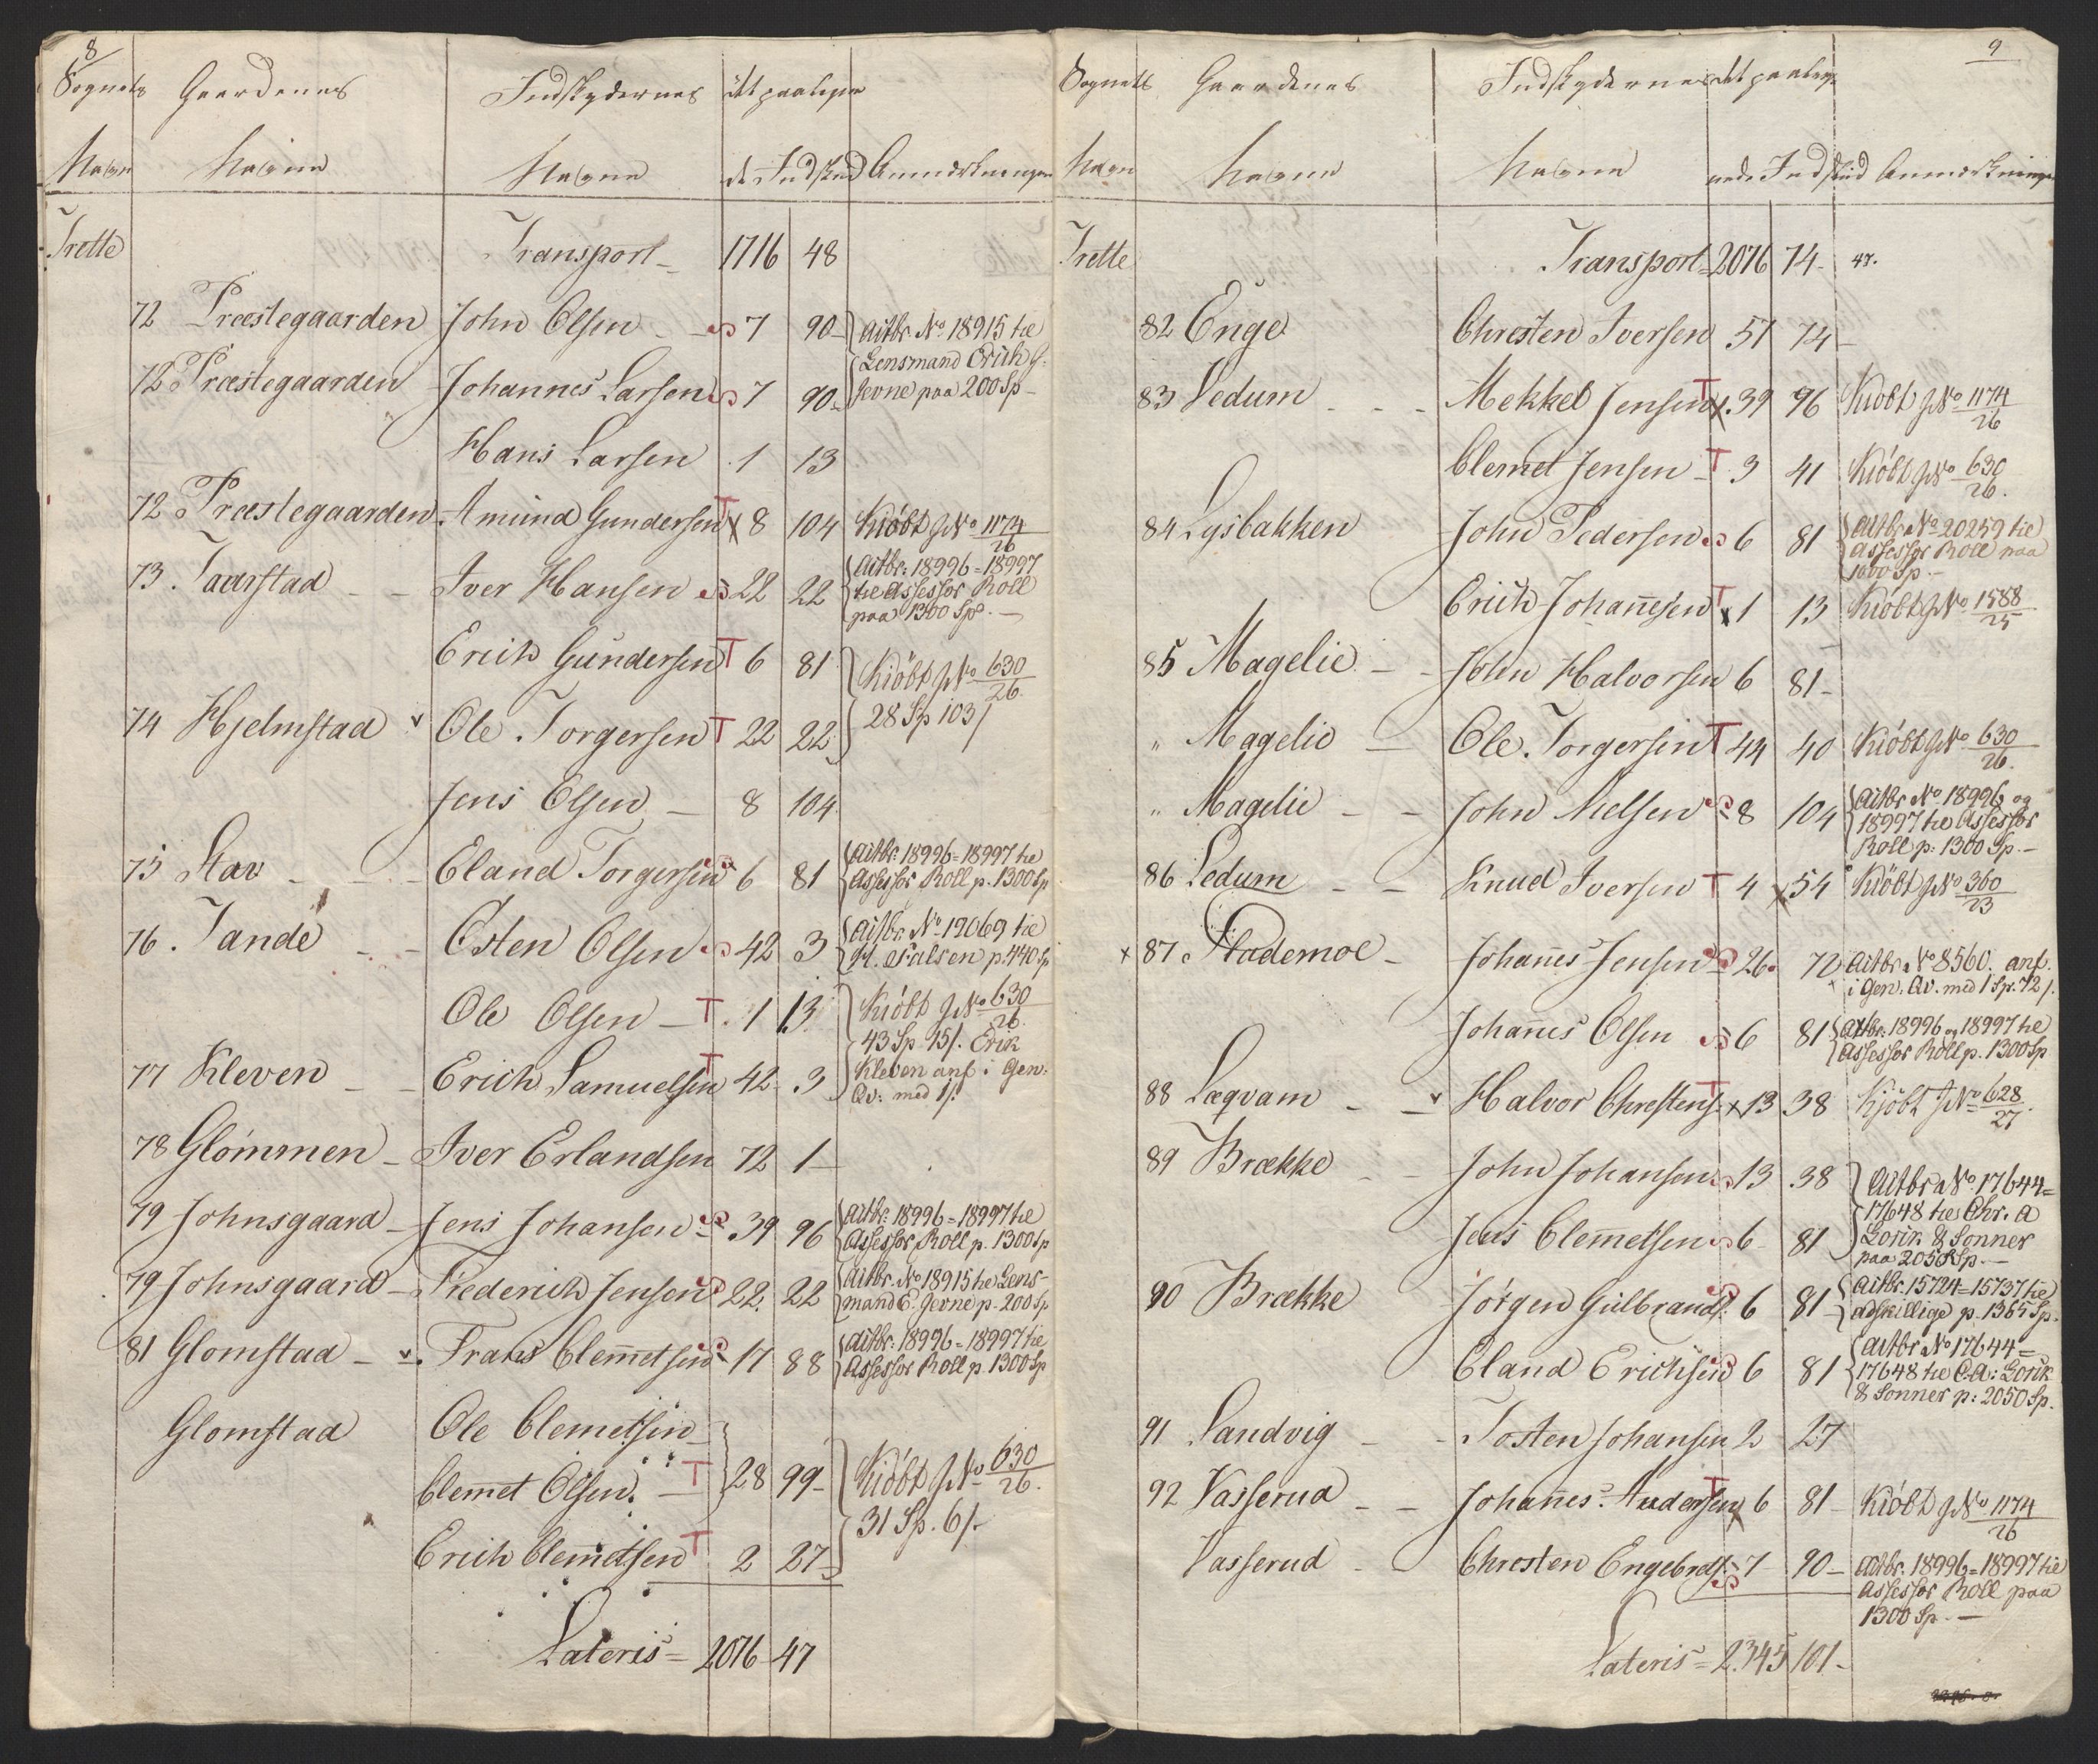 8
Sognets Gaardenes Indskydernes det paaløpen
Navn Navne Navne de Indskud Anmærkninger
Trette Transport 1716 48
72 Præstegaarden John Olsen S 7 90 Aitbr. No 18915 til
Lensmand Erich G.
72 Præstegaarden Johannes Larsen S 7 90 Jevne paa 200 Sp
Hans Larsen 1 13
72 Præstegaarden Amund Gundersen T x 8 104 Kiöbt J No 1174/26
73 Taarstad Iver Hansen S 22 22 Aitbr. 18996=18997
til Assessor Roll
paa 1300 Sp.
Erich Gundersen T 6 81 Kiöbt J No 630/26
74 Hjelmstad v Ole Torgersen T 22 22 28 Sp 103/
Jens Olsen 8 104
75 Stav Eland Torgersen S 6 81 Aitbr. 18996=18997 til
Assessor Roll p. 1300 Sp
76 Tande Østen Olsen S 42 3 Aitbr. No 19069 til
H. Falsen p. 440 Sp
Ole Olsen T 1 13 Kiöbt J No 630/26
43 Sp 15/. Erik
77 Kleven Erich Samuelsen T 42 3 Kleven anf i Gen:
Qv: med 1/.
78 Glömmen Iver Erlandsen 72 1
79 Johnsgaard Jens Johansen S 39 96 Aitbr. 18996=18997 til
Assessor Roll p. 1300 Sp
79 Johnsgaard Frederich Jensen S 22 22 Aitbr. No 18915 til Lens-
mand E. Jevne p. 200 Sp
81 Glomstad v Frans Clem̅etsen S 17 88 Aitbr. 18996=18997 til
Assessor Roll p. 1300 Sp
Glomstad Ole Clemetsen
Clem̅et Olsen T 28 99 Kiöbt J No 630/26.
31 Sp. 6/.
Erich Clem̅etsen T 2 27
Lateris = 2076 47
9
Sognets Gaardenes Indskydernes det paaløp-
Navn Navne Navne ende Indskud Anmærkninger
Trette Transport 2076 74 47.
82 Enge Chresten Iversen 51 74
83 Ledum Mekkel Jensen T x 39 96 Kiöbt J No 1174/26
Clemet Jensen T 3 41 Kiöbt J No 630/26.
84 Lysbakken John Pedersen S 6 81 Aitbr. No 20259 til
Assessor Roll paa
1000 Sp.
Erich Johan̅esen T x 1 13 Kiöbt J No 1588/25
85 Magelie John Halvorsen 6 81
" Magelie Ole Torgersen T 44 40 Kiöbt J No 630/26.
" Magelie John Nielsen S 8 104 Aitbr No 18996 og
18997 til Assessor
Roll p. 1300 Sp.
86 Ledum Knud Iversen T 4 x 54 Kiöbt J No 360/23
x 87 Stademoe Johan̅es Jensen S 26 72 Aitbr No 8560. anf.
i Gen: Qv. med 1 Sp. 72/.
Johan̅es Olsen S 6 81 Aitbr. 18996 og 18997 til
Assessor Roll p. 1300 Sp
88 Lægvam v Halvor Chrestens. T x 13 38 Kjöbt J No 628/27.
89 Brække John Johansen S 13 38 Aitbr No 17644=
17648 til Chr. A
Jens Clem̅etsen S 6 81 Lorik & Sonner
paa 2050 Sp.
90 Brække Jörgen Gulbrands. S 6 81 Aitbr. 15724=15737 til
adskillige p. 1365 Sp.
Eland Erichsen S 6 81 Aitbr No 17644=
17648 til C. A: Lorik
& Sonner p: 2050 Sp.
91 Sandvig Tosten Johansen 2 27
92 Vasserud Johan̅es Andersen T x 6 81 Kiöbt J No 1174/26
Vasserud Chresten Engebrets. S 7 90 Aitbr. 18996=18997 til
Assessor Roll paa
1300 Sp.
Lateris = 2345 101